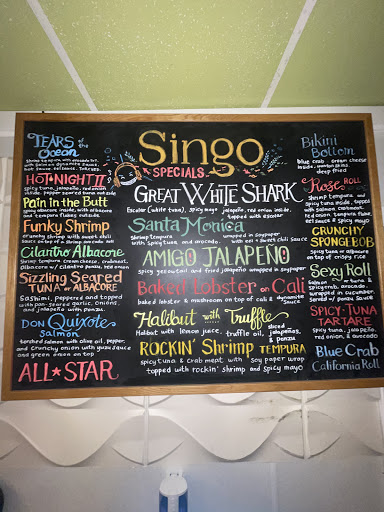 Singo
SPECIALS
TEARS of the Ocean
shrimp tempura with avocado
with salmon dynamite sauce,
hot sauce
HOT·NIGHT II
spicy tuna, jalapeño, red onion
inside. pepper seared tuna outside
Pain in the Butt
spicy salmon inside, with albacore
and tempura flakes outside
Funky Shrimp
crunchy shrimp with sweet chili
sauce on top of
Cilantro Albacore
shrimp tempura, cream cheese, crabmeat,
Albacore w/ cilantro ponzu, red onion
Sizzling Seared
TUNA or ALBACORE
Sashimi, peppered and topped
with pan-seared garlic, onions,
and jalapeño with ponzu.
DON Quixote
Salmon
torched salmon with olive oil, pepper,
and crunchy onion with yuzu sauce
and green onion on top
ALL★STAR
GREAT WHITE SHARK
Escolar (white tuna), spicy mayo, jalapeño, red onion inside,
topped with escolar
Santa Monica
shrimp tempura wrapped in soypaper
with spicy tuna and avocado. with eel + sweet chili sauce
AMIGO JALAPEÑO
spicy yellowtail and fried jalapeño wrapped in soypaper
Baked Lobster on Cali
baked lobster & mushroom on top of cali & dynamite sauce
Halibut with Truffle
Halibut with lemon juice, truffle oil, sliced jalapeños, & ponzu
ROCKIN' Shrimp TEMPURA
spicy tuna & crab meat with soy paper wrap
topped with rockin' shrimp and spicy mayo
Bikini
Bottom
blue crab + cream cheese
inside, wonton skins
deep fried
Rose ROLL
shrimp tempura and
spicy tuna inside, topped
with salmon, crabmeat,
red onion, tempura flakes,
eel sauce & spicy mayo
CRUNCHY
SPONGEBOB
spicy tuna or albacore
on top of crispy rice
Sexy Roll
Salmon or tuna &
spicy crab, avocado,
wrapped in cucumber.
Served w/ ponzu Sauce
SPICY·TUNA
TARTARE
spicy tuna, jalapeño,
red onion, & avocado
Blue Crab
California Roll